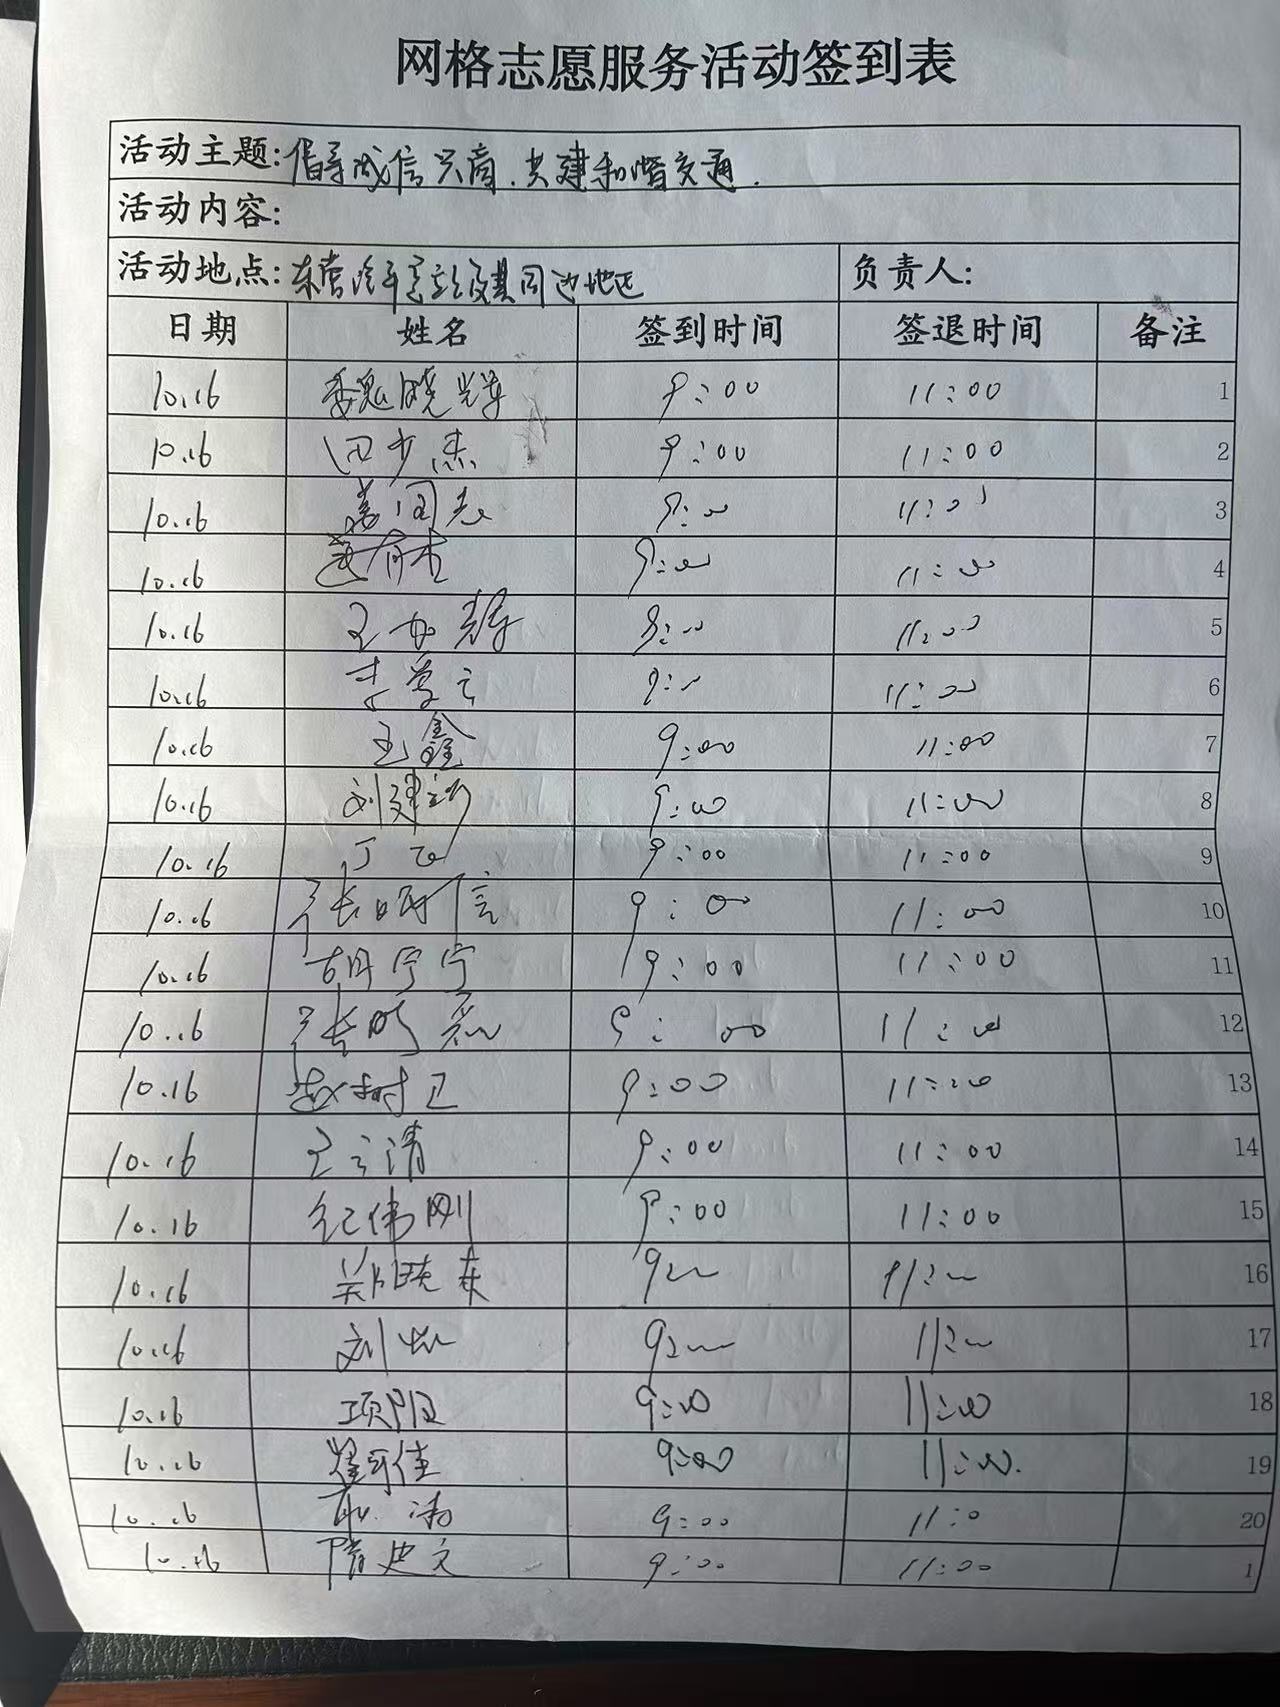 网格志愿服务活动签到表
活动主题: 倡导诚信兴商.共建和谐交通.
活动内容:
活动地点: 东营汽车总站及其周边地区 负责人:
日期 姓名 签到时间 签退时间 备注
10.16 魏晓辉 9:00 11:00 1
10.16 田少杰 9:00 11:00 2
10.16 9:00 11:00 3
10.16 9:00 11:00 4
10.16 9:00 11:00 5
10.16 9:00 11:00 6
10.16 王鑫 9:00 11:00 7
10.16 刘建 9:00 11:00 8
10.16 丁 9:00 11:00 9
10.16 张 信 9:00 11:00 10
10.16 胡宁宁 9:00 11:00 11
10.16 张 9:00 11:00 12
10.16 赵树卫 9:00 11:00 13
10.16 王云清 9:00 11:00 14
10.16 纪伟刚 9:00 11:00 15
10.16 晓东 9:00 11:00 16
10.16 刘 9:00 11:00 17
10.16 项阳 9:00 11:00 18
10.16 佳 9:00 11:00. 19
10.16 耿 9:00 11:0 20
10.16 隋 文 9:00 11:00 1